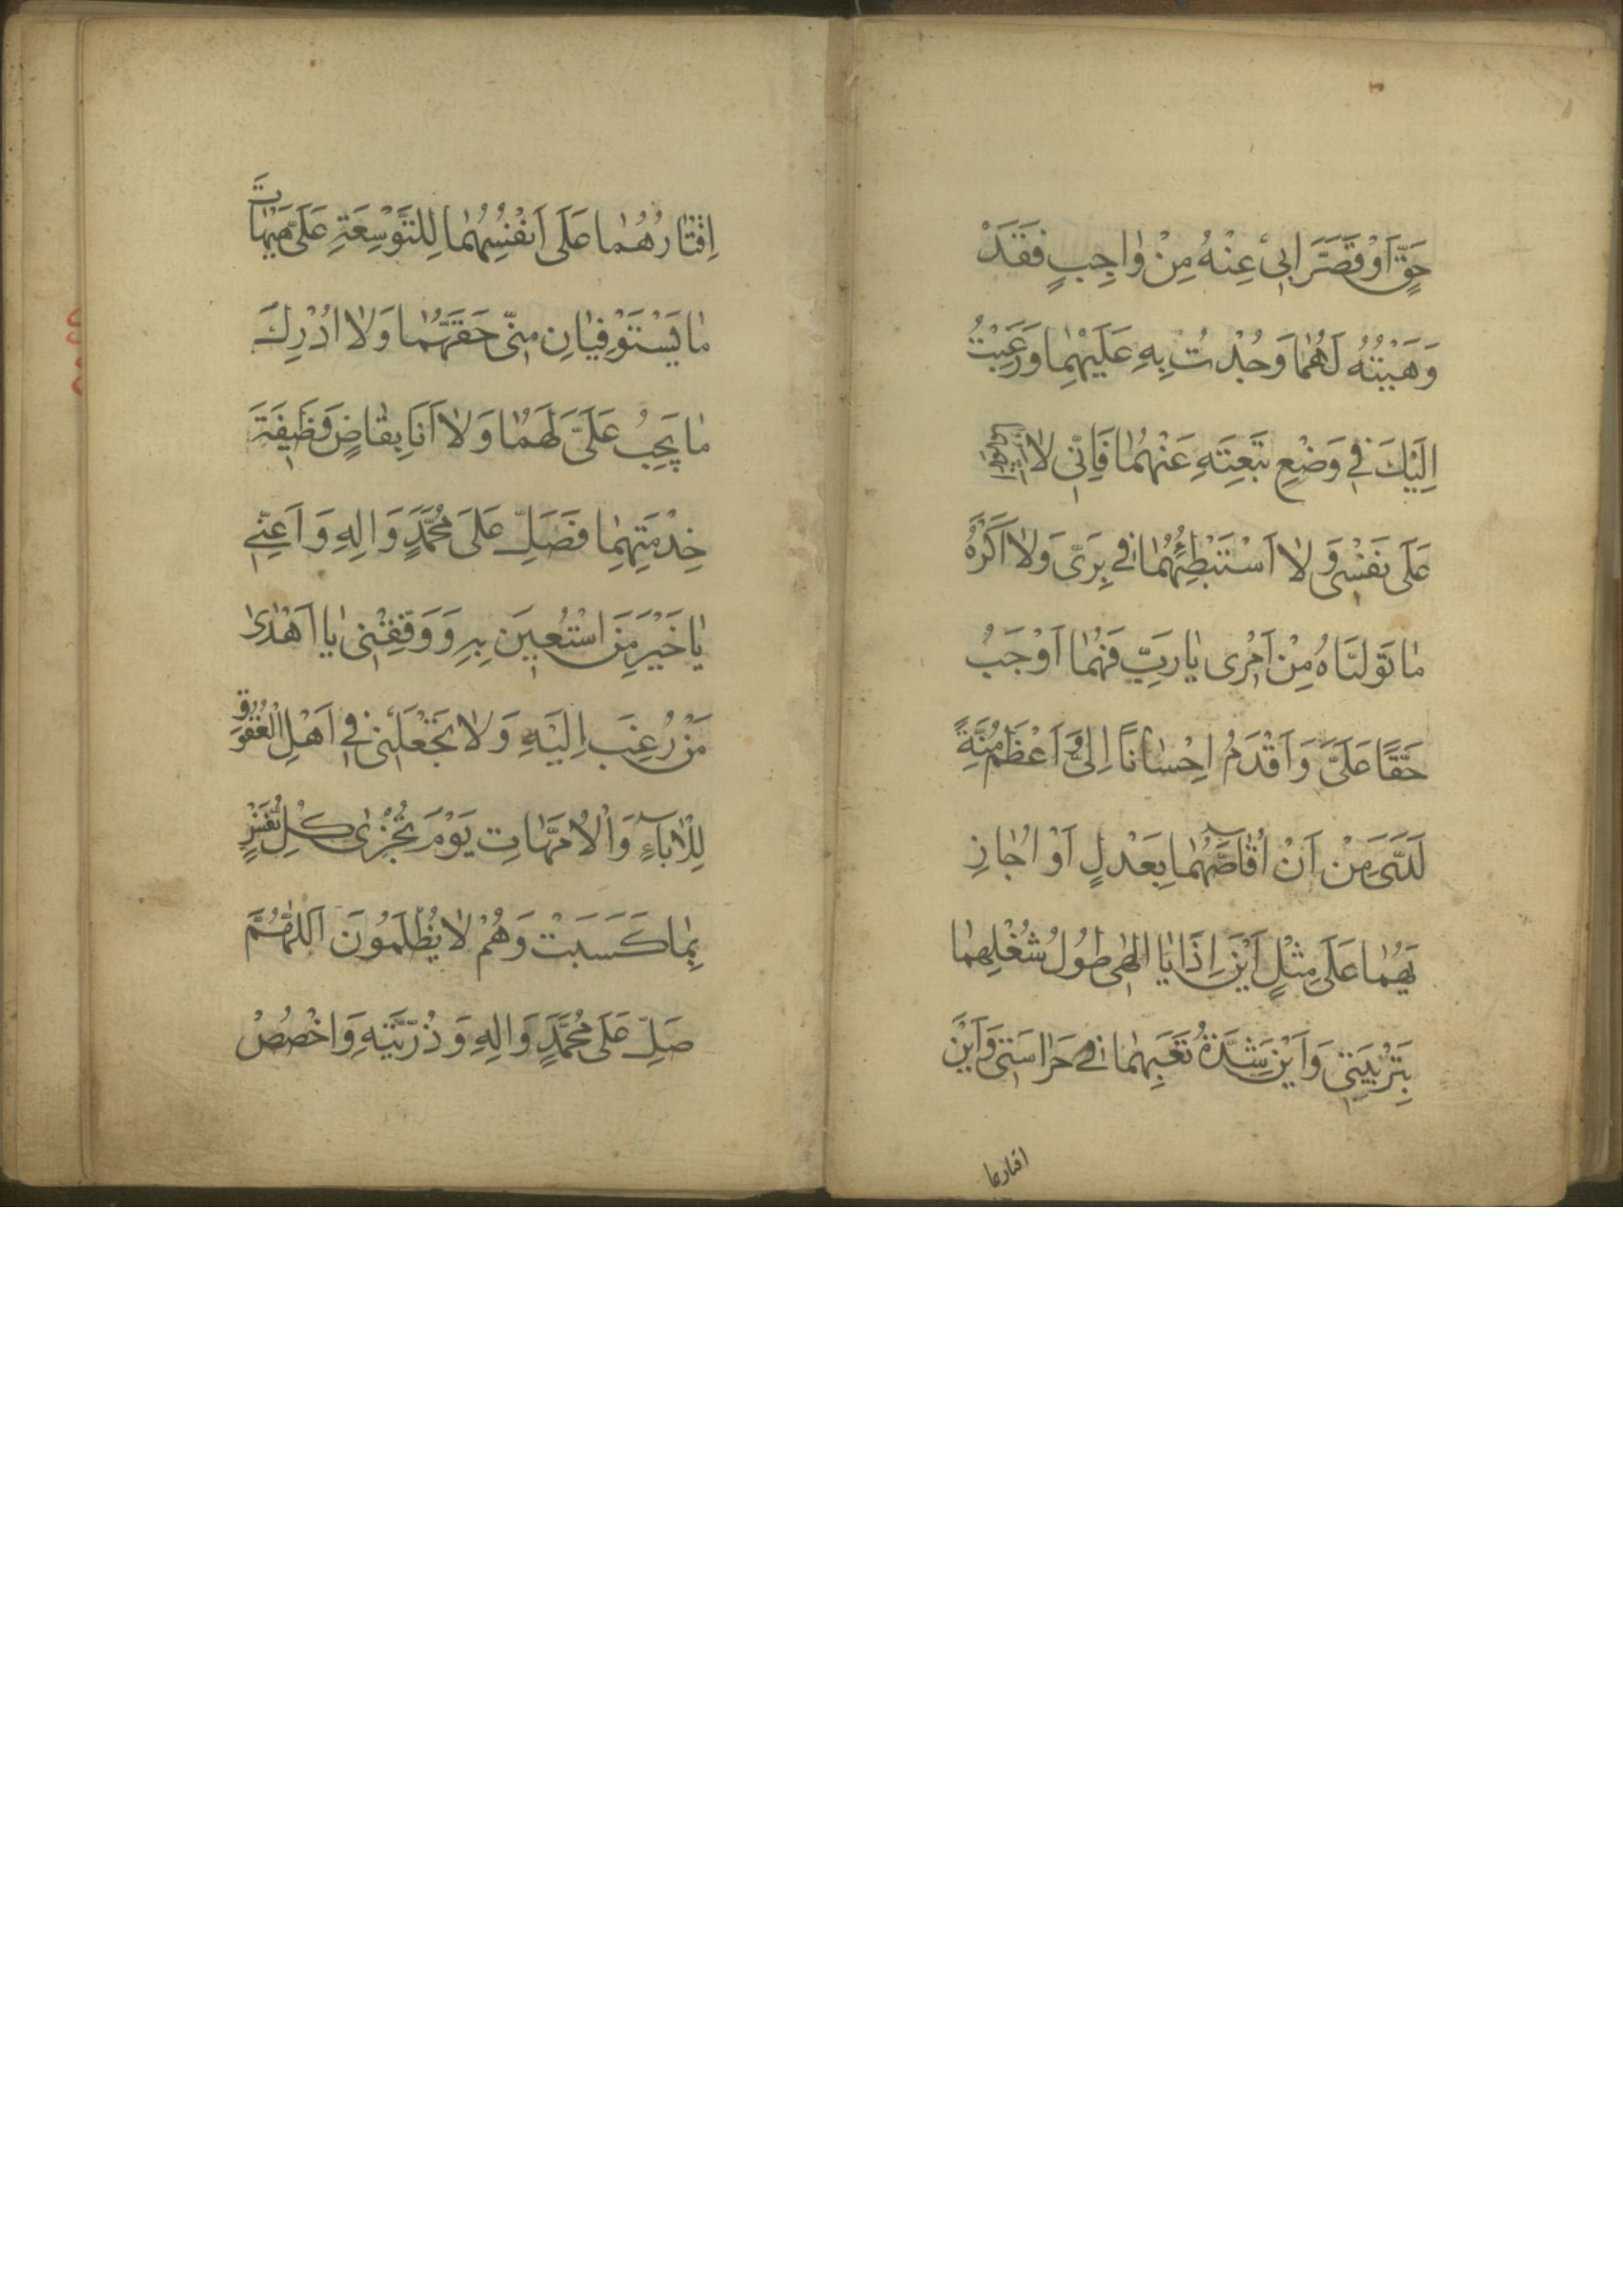 حَقٍّ اَوْ قَصَّرَ ابى عِنْهُ مِنْ وٰاجِبٍ فَقَدْ
وَهَبْتُهُ لَهُمٰا وَجُدْتُ بِهِ عَلَيْهِمٰا وَرَغِبْتُ
اِلَيْكَ فى وَضْعِ تَبِعَتِهِ عَنْهُمٰا فَاِنّى لاٰ
عَلَى نَفْسى وَلاٰ اَسْتَبْطِئُهُمٰا فى بِرّى وَلاٰ اَكْرَهُ
مٰا تَوَلَّيَاهُ مِنْ اَمْرى يٰا رَبِّ فَهُمٰا اَوْجَبُ
حَقًّا عَلَىَّ وَاَقْدَمُ اِحْسٰانًا اِلَىَّ وَ اَعْظَمُ مِنَّةً
لَدَىَّ مِنْ اَنْ اُقٰاصَّهُمٰا بِعَدْلٍ اَوْ اُجٰازِ
يَهُمٰا عَلَى مِثْلٍ اَيْنَ اِذَا يٰا اِلٰهى طُولُ شُغْلِهِمٰا
بِتَرْبِيَتى وَاَيْنَ شِدَّةُ تَعَبِهِمٰا فى حَرٰاسَتى وَاَيْنَ
اقتارهما
اِقْتٰارُهُمٰا عَلَى اَنْفُسِهِمٰا لِلتَّوْسِعَةِ عَلَىَّ هَيْهٰاتَ
مٰا يَسْتَوْفِيٰانِ مِنّى حَقَّهُمٰا وَلاٰ اُدْرِكُ
مٰا يَجِبُ عَلَىَّ لَهُمٰا وَلاٰ اَنَا بِقٰاضٍ وَظيفَةَ
خِدْمَتِهِمٰا فَصَلِّ عَلَى مُحَمَّدٍ وَالِهِ وَ اَعِنّى
يٰا خَيْرَ مَنَ اسْتُعينَ بِهِ وَوَفِّقْنى يٰا اَهْدٰى
مَنْ رُغِبَ اِلَيْهِ وَلاٰ تَجْعَلْنى فى اَهْلِ الْعُقُوقِ
لِلْاٰبآءِ وَالْاُمَّهٰاتِ يَوْمَ تُجْزٰى كُلُّ نَفْسٍ
بِمٰا كَسَبَتْ وَهُمْ لاٰ يُظْلَمُونَ اَللّٰهُمَّ
صَلِّ عَلَى مُحَمَّدٍ وَالِهِ وَ ذُرِّيَّتِهِ وَاخْصُصْ